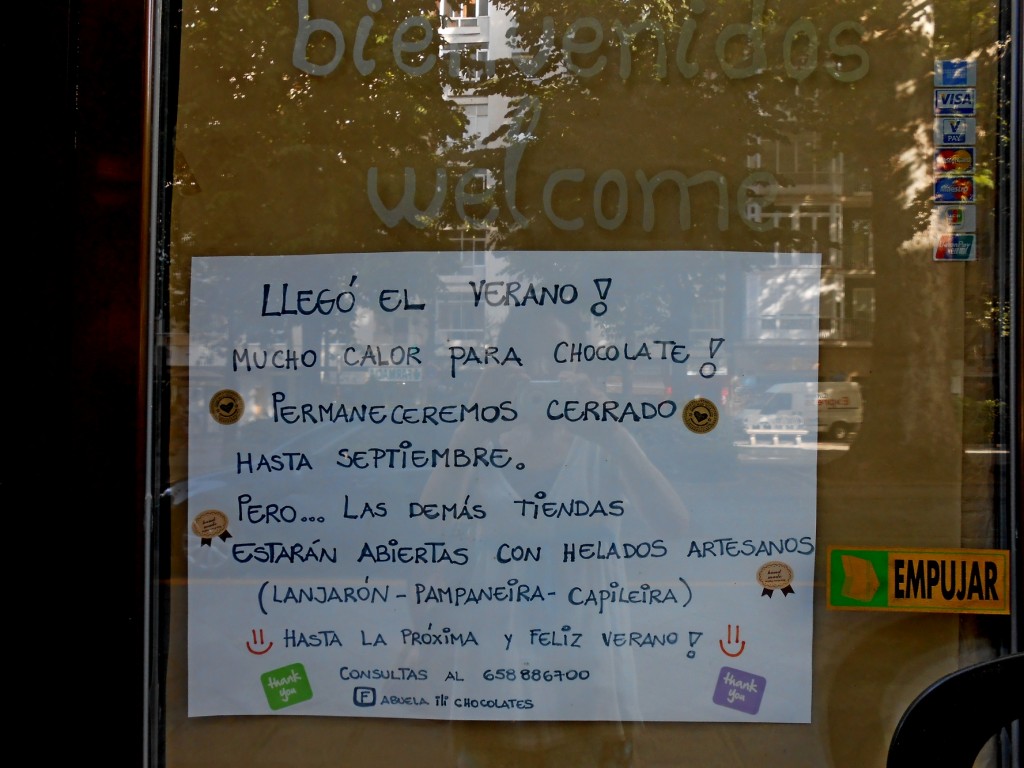 bienvenidos
welcome
VISA
V PAY
Maestro
LLEGÓ EL VERANO!
MUCHO CALOR PARA CHOCOLATE!
PERMANECEREMOS CERRADO
HASTA SEPTIEMBRE.
PERO... LAS DEMÁS TIENDAS
ESTARÁN ABIERTAS CON HELADOS ARTESANOS
(LANJARÓN - PAMPANEIRA - CAPILEIRA)
HASTA LA PRÓXIMA Y FELIZ VERANO!
CONSULTAS AL 658886700
F ABUELA ILI CHOCOLATES
thank you
thank you
EMPUJAR